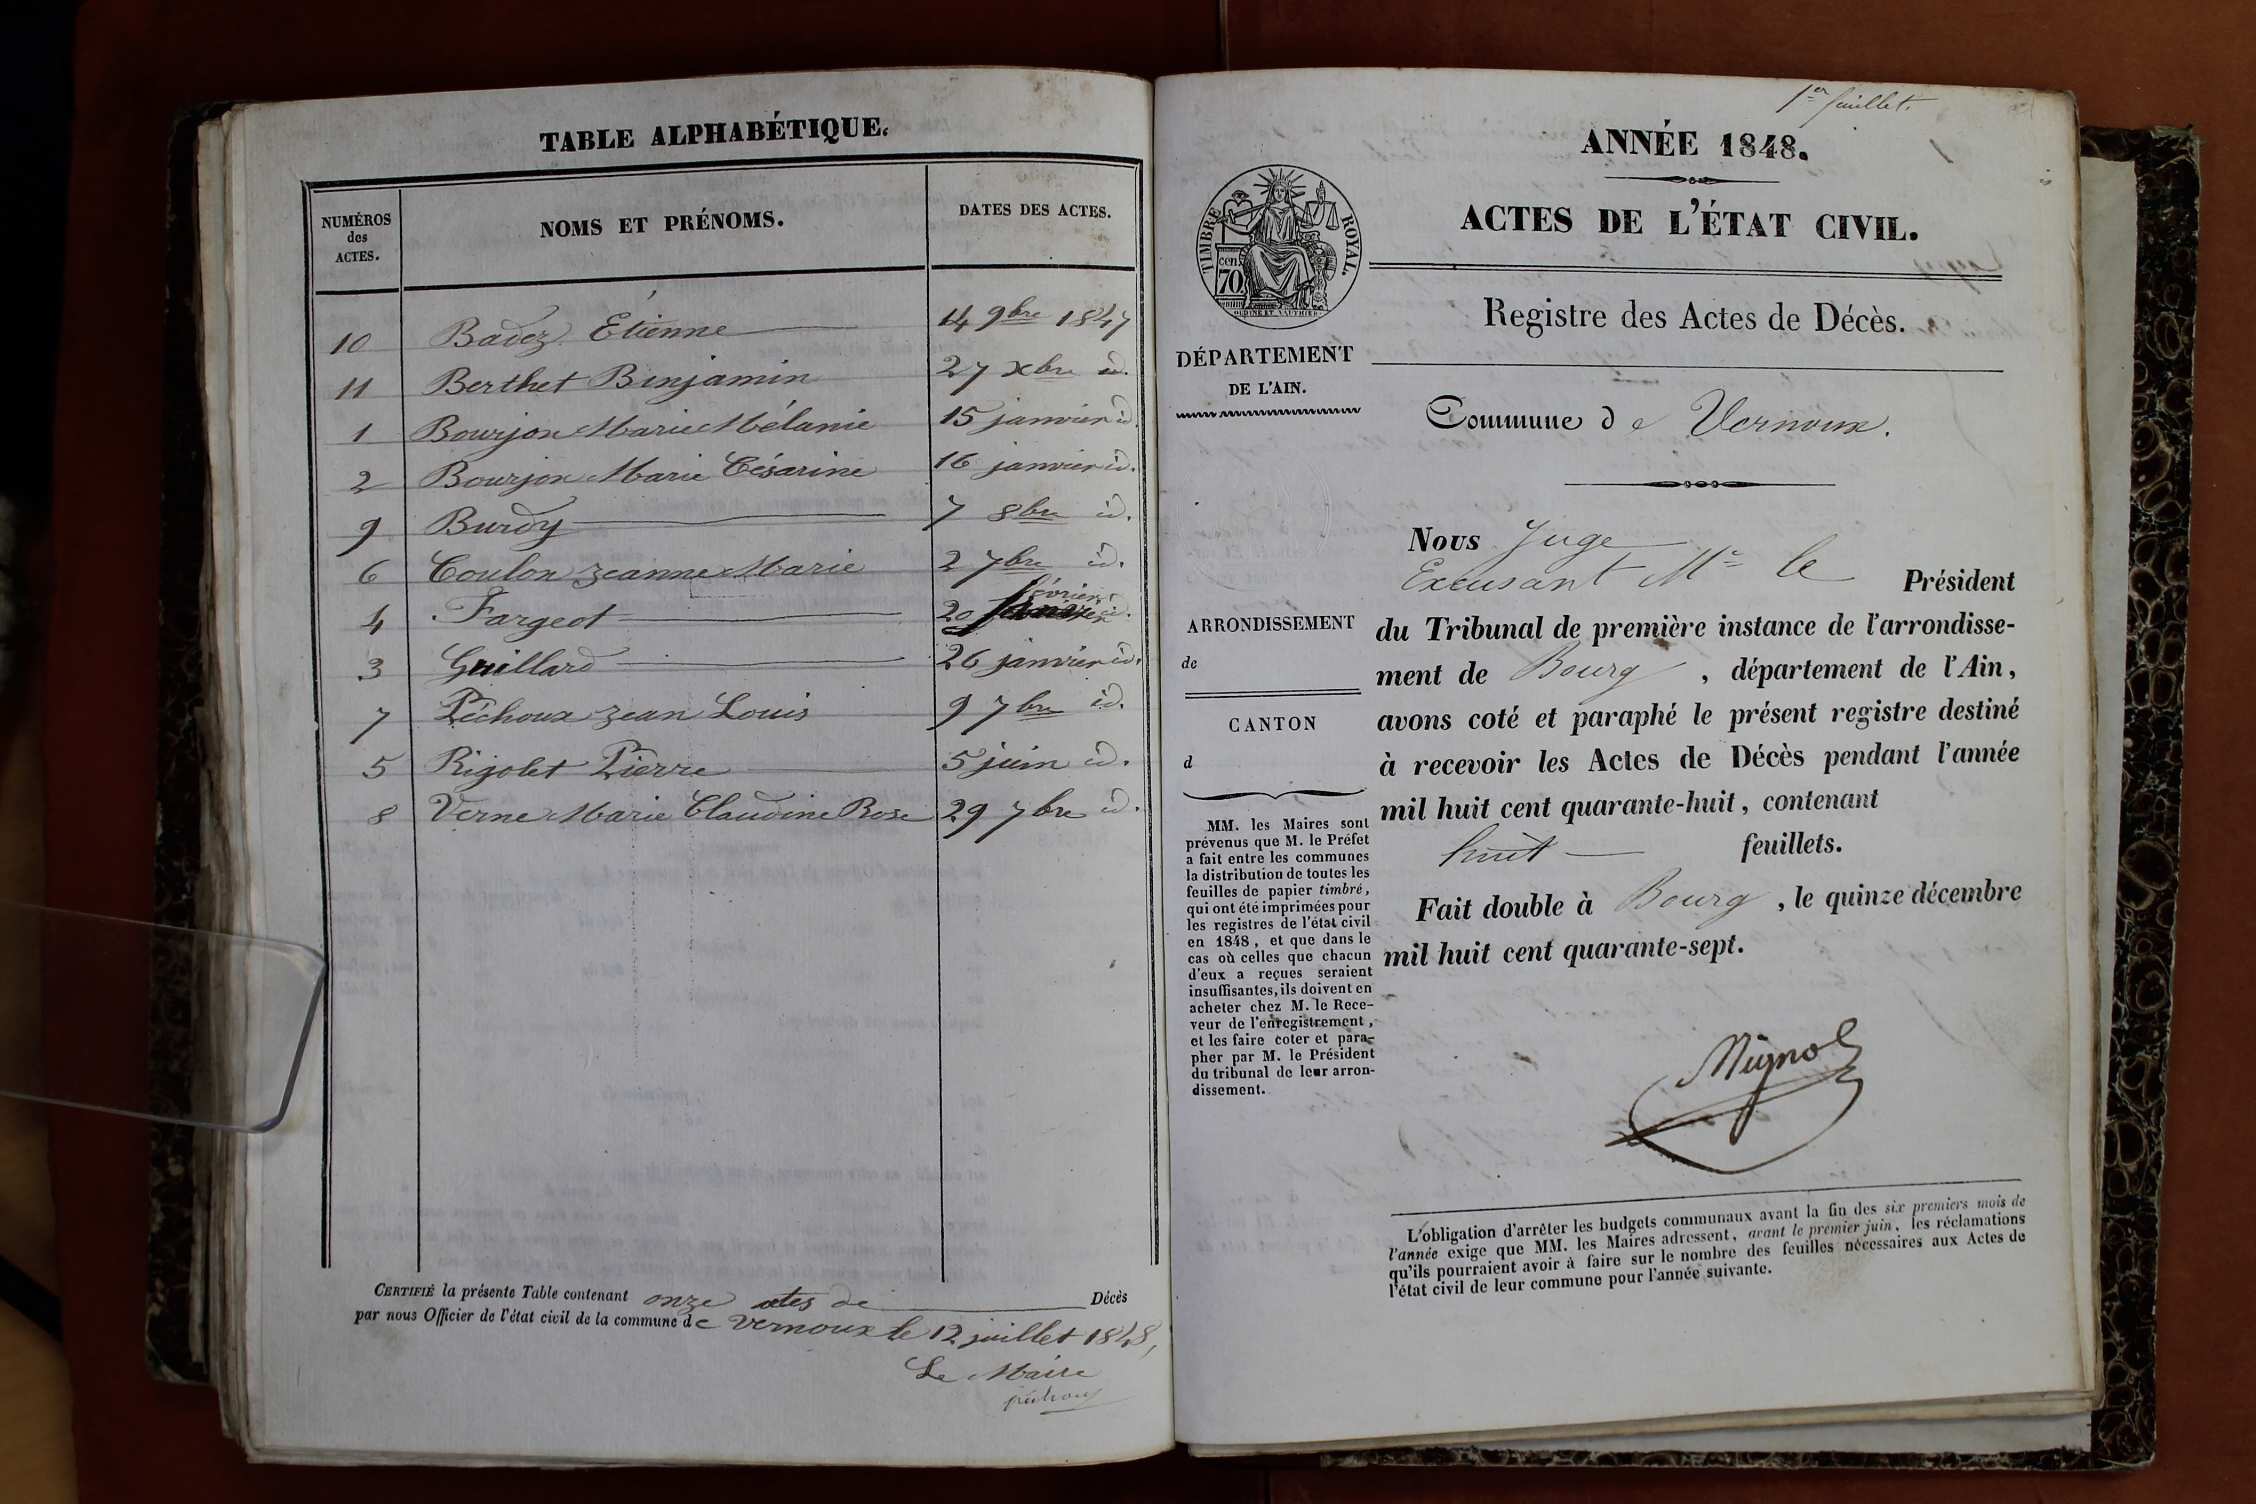 TABLE ALPHABÉTIQUE.
NUMÉROS des ACTES.
NOMS ET PRÉNOMS.
DATES DES ACTES.
10 Badez Etienne 14 9bre 1847
11 Berthet Binjamin 27 xbre id.
1 Bourjon Marie Mélanie 15 janvier id.
2 Bourjon Marie Césarine 16 janvier id.
9 Burdy 7 8bre id.
6 Coulon Jeanne Marie 2 7bre id.
4 Fargeot 20 février id.
3 Guillard 26 janvier id.
7 Péchoux Jean Louis 9 7bre id.
5 Rigolet Pierre 5 juin id.
8 Verne Marie Claudine Rose 29 7bre id.
CERTIFIÉ la présente Table contenant onze actes de Décès
par nous Officier de l'état civil de la commune de Vernoux le 12 juillet 1848,
Le Maire
péchoux
1er feuillet.
ANNÉE 1848.
ACTES DE L'ÉTAT CIVIL.
TIMBRE ROYAL.
70 cen.
OUDINÉ ET VAUTHIER
Registre des Actes de Décès.
DÉPARTEMENT
DE L'AIN.
Commune de Vernoux.
ARRONDISSEMENT
de
CANTON
d
MM. les Maires sont
prévenus que M. le Préfet
a fait entre les communes
la distribution de toutes les
feuilles de papier timbré,
qui ont été imprimées pour
les registres de l'état civil
en 1848, et que dans le
cas où celles que chacun
d'eux a reçues seraient
insuffisantes, ils doivent en
acheter chez M. le Rece-
veur de l'enregistrement,
et les faire coter et para-
pher par M. le Président
du tribunal de leur arron-
dissement.
Nous Juge
Excusant Mr le Président
du Tribunal de première instance de l'arrondisse-
ment de Bourg, département de l'Ain,
avons coté et paraphé le présent registre destiné
à recevoir les Actes de Décès pendant l'année
mil huit cent quarante-huit, contenant
huit feuillets.
Fait double à Bourg, le quinze décembre
mil huit cent quarante-sept.
Mignot
L'obligation d'arrêter les budgets communaux avant la fin des six premiers mois de
l'année exige que MM. les Maires adressent, avant le premier juin, les réclamations
qu'ils pourraient avoir à faire sur le nombre des feuilles nécessaires aux Actes de
l'état civil de leur commune pour l'année suivante.